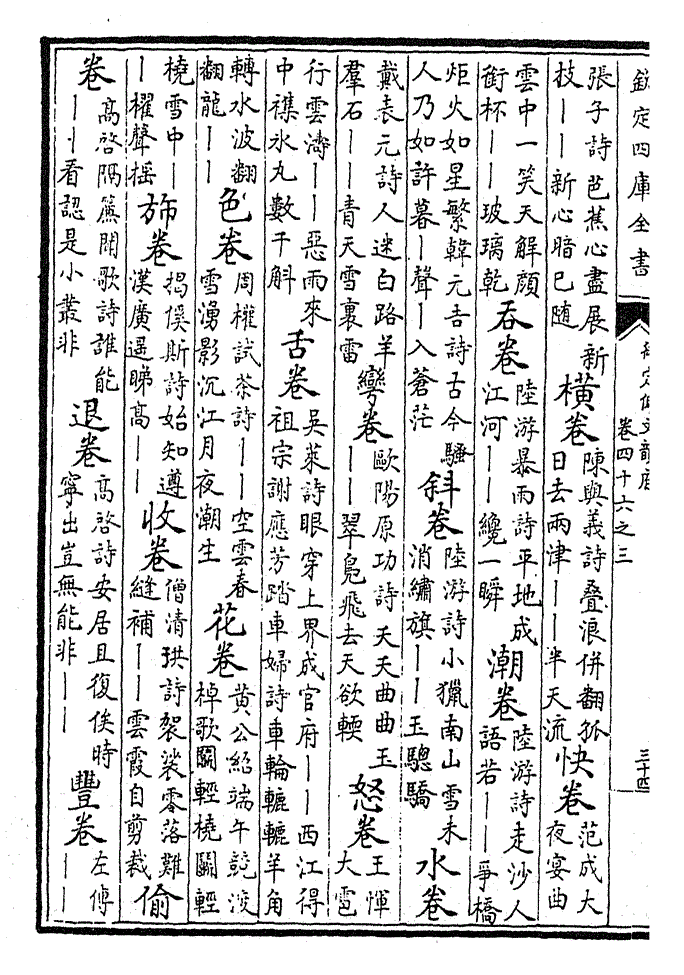 欽定四庫全書
御定佩文韻府
卷四十六之三
三十四
張子詩芭蕉心盡展新
技——新心暗已随
橫卷
陳與義詩疊浪併翻孤
日去兩津——半天流
快卷
范成大
夜宴曲
雲中一笑天解顔
銜杯——玻璃乾
吞卷
陸游暴雨詩平地成
江河——纔一瞬
潮卷
陸游詩走沙人
語若——爭橋
炬火如星繁韓元吉詩古今騷
人乃如許暮—聲—入蒼茫
斜卷
陸游詩小獵南山雪未
消繡旗——玉驄驕
水卷
戴表元詩人迷白路羊
羣石——青天雪裏雷
彎卷
歐陽原功詩天天曲曲玉
——翠鳧飛去天欲輭
怒卷
王惲
大雹
行雲濤——惡雨來
中襍氷丸數千斛
舌卷
吳萊詩眼穿上界成官府——西江得
祖宗謝應芳踏車婦詩車輪轆轆羊角
轉水波翻
翻龍——
色卷
周權試茶詩——空雲春
雪湧影沉江月夜潮生
花卷
黄公紹端午競渡
棹歌鬬輕橈鬬輕
橈雪中—
—櫂聲揺
斾卷
揭傒斯詩始知遵
漢廣遥睇高——
收卷
僧清珙詩袈裟零落難
縫補——雲霞自剪裁
偷
卷
高啓隔簾聞歌詩誰能
——看認是小叢非
退卷
高啓詩安居且復俟時
寧出豈無能非——
豐卷
左傳
——